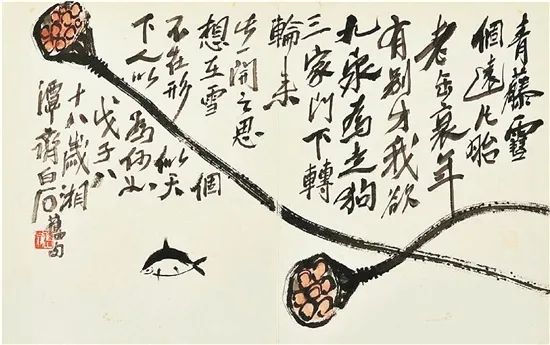 青藤雪
個遠凡胎
老缶衰年
有別才我欲
九泉為走狗
三家門下轉
輪來
此一開之思
想在雪個
不在形似天
下人以為何如
戊子八
十八歲湘
潭齊白石舊句